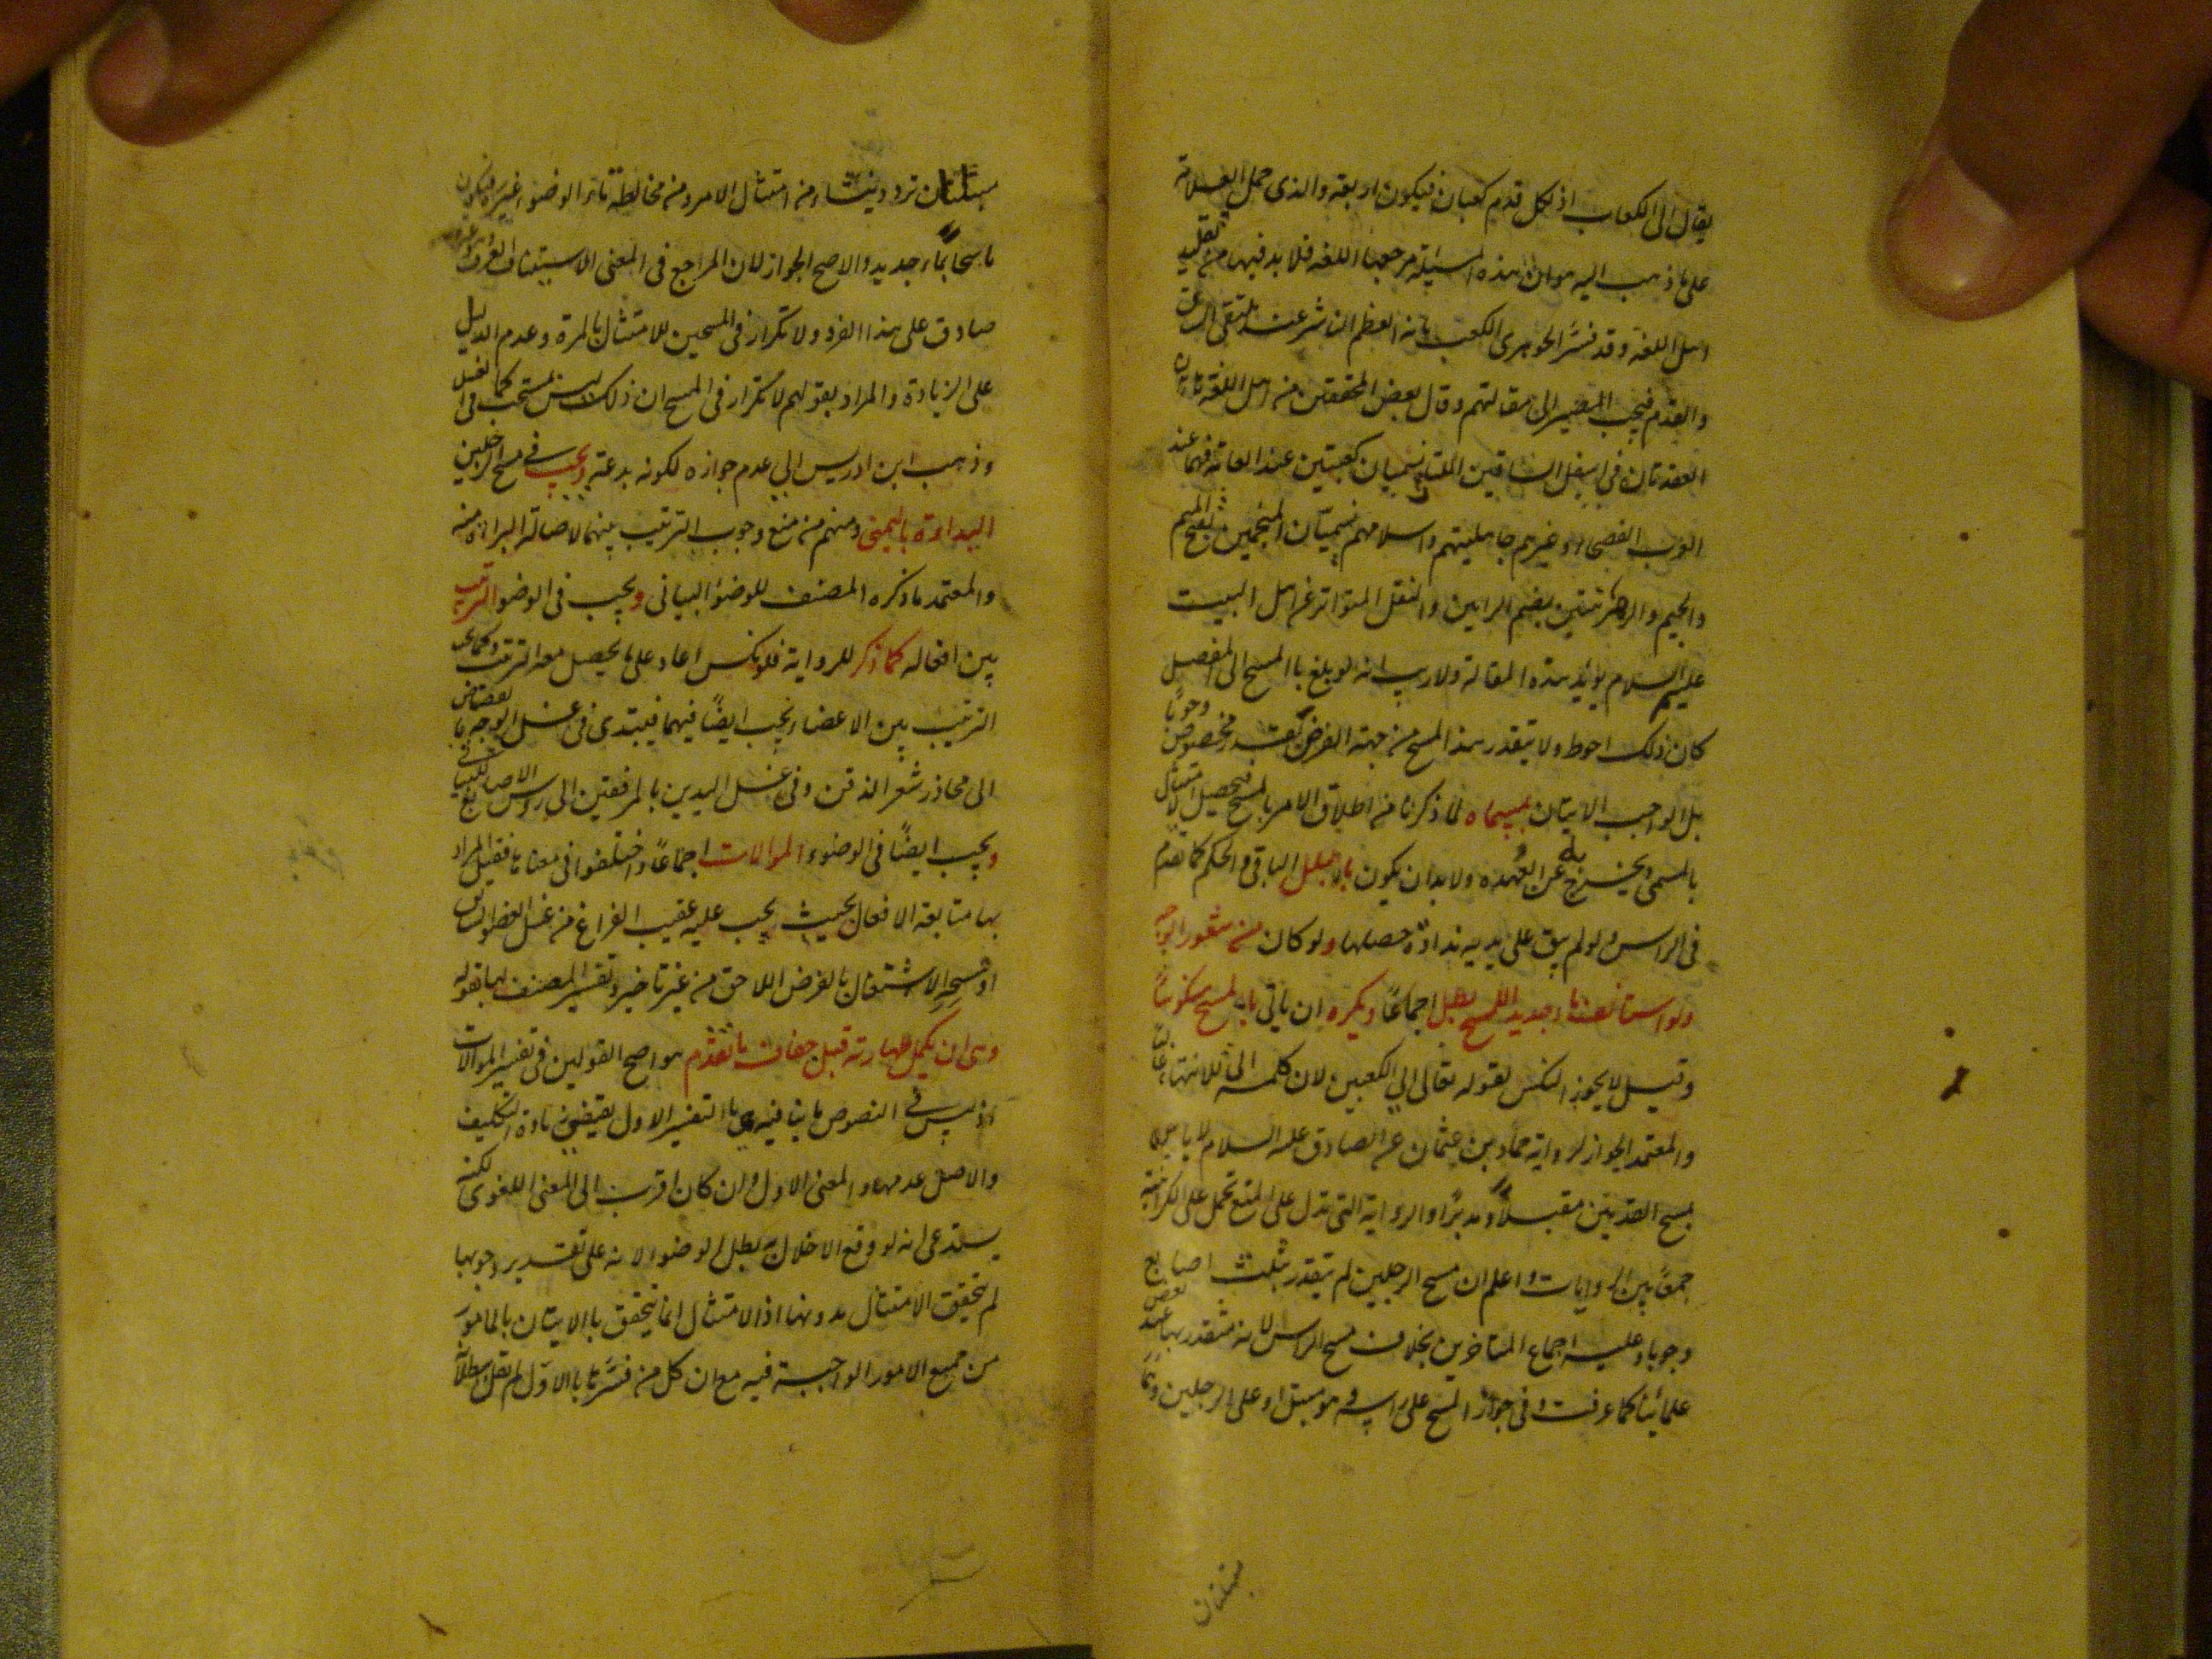 يقال الى الكعاب اذ لكل قدم كعبان فيكون اربعة والذى حمل العلامة
على ما ذهب اليه هو ان هذه المسئلة مرجعها اللغة فلا بد فيها من تقليد
اهل اللغة وقد فسّر الجوهرى الكعب بانه العظم الناشر عند ملتقى الساق
والقدم فيجب المصير الى مقالتهم وقال بعض المحققين من اهل اللغة هاتان
العقدتان فى اسفل الساقين اللتان تسميان كعبين عند العامة فهما عند
العرب الفصحاء وغيرهم جاهليتهم واسلامهم تسميان المنجمين بفتح الميم
والجيم والرهرتين بضم الرايين والنقل المتواتر عن اهل البيت
عليهم السلام يؤيد هذه المقالة ولا ريب انه لو بلغ با المسح الى المفصل
كان ذلك احوط ولا يتقدر هذا المسح من جهة العرض بقدر مخصوص وجوبًا
بل الواجب الاتيان بمسماه لما ذكرنا من اطلاق الامر بالمسح فيحصل الامتثال
بالمسمى ويخرج به عن العهدة ولا بد ان يكون بالبلل الباقى والحكم كما تقدم
فى الراس ولو لم يبق على يديه نداوة حصلها ولو كان من شعور الوجه
ولو استانف ماء جديد للمسح بطل اجماعًا ويكره ان ياتى بالمسح منكوسًا
وقيل لا يجوز النكس لقوله تعالى الى الكعبين لان كلمة الى للانتهاء
والمعتمد الجواز لرواية حماد بن عثمان عن الصادق عليه السلام لا باس
بمسح القدمين مقبلًا ومدبرًا والرواية التى تدل على المنع تحمل على الكراهية
جمعًا بين الروايات واعلم ان مسح الرجلين لم يتقدر بثلث اصابع
وجوبا وعليه اجماع المتاخرين بخلاف مسح الراس لانه متقدر بها عند بعض
علمائنا كما عرفت وفى جواز المسح على راسه وهو مبتل او على الرجلين وهما
مبتلتان
مبتلتان تردد ينشاء من امتثال الامر ومن مخالطة ماء الوضوء غيره فيكون
ماسحا بماء جديد والاصح الجواز لان المراجع فى المعنى الاستيناف العرف وغير
صادق على هذا الفرد ولا تكرار فى المسحين للامتثال بالمرة وعدم الدليل
على الزيادة والمراد بقولهم لا تكرار فى المسح ان ذلك ليس بمستحب كما فى الغسل
وذهب ابن ادريس الى عدم جوازه لكونه بدعة ويجب فى مسح الرجلين
البداءة باليمنى ومنهم من منع وجوب الترتيب بينهما لاصالة البراءة منه
والمعتمد ما ذكره المصنف للوضوء البيانى ويجب فى الوضوء الترتيب
بين افعاله كما ذكر للرواية فلو نكس اعاد على ما يحصل معه الترتيب وكما يجب
الترتيب بين الاعضاء يجب ايضًا فيهما فيبتدى فى غسل الوجه بالقصاص
الى محاذر شعر الذقن وفى غسل اليدين بالمرفقين الى روس الاصابع
ويجب ايضًا فى الوضوء الموالات اجماعًا واختلفوا فى معناها فقيل المراد
بها متابعة الافعال بحيث يجب عليه عقيب الفراغ من غسل العضو السابق
او مسحه الاشتغال بالفرض اللاحق من غير تاخير وتفسير المصنف لها بقوله
وهى ان يكمل طهارته قبل جفاف ما تقدم هو اصح القولين فى تفسير الموالات
اذ ليس فى النصوص ما ينافيه واما التفسير الاول يقتضى زيادة التكليف
والاصل عدمها والمعنى الاول وان كان اقرب الى المعنى اللغوى لكنه
يستدعى انه لو وقع الاخلال به بطل الوضوء لانه على تقدير وجوبها
لم يتحقق الامتثال بدونها اذ الامتثال انما يتحقق با الاتيان بالمامور
من جميع الامور الواجبة فيه مع ان كل من فسّرها با الاوّل لم يقل ببطلان